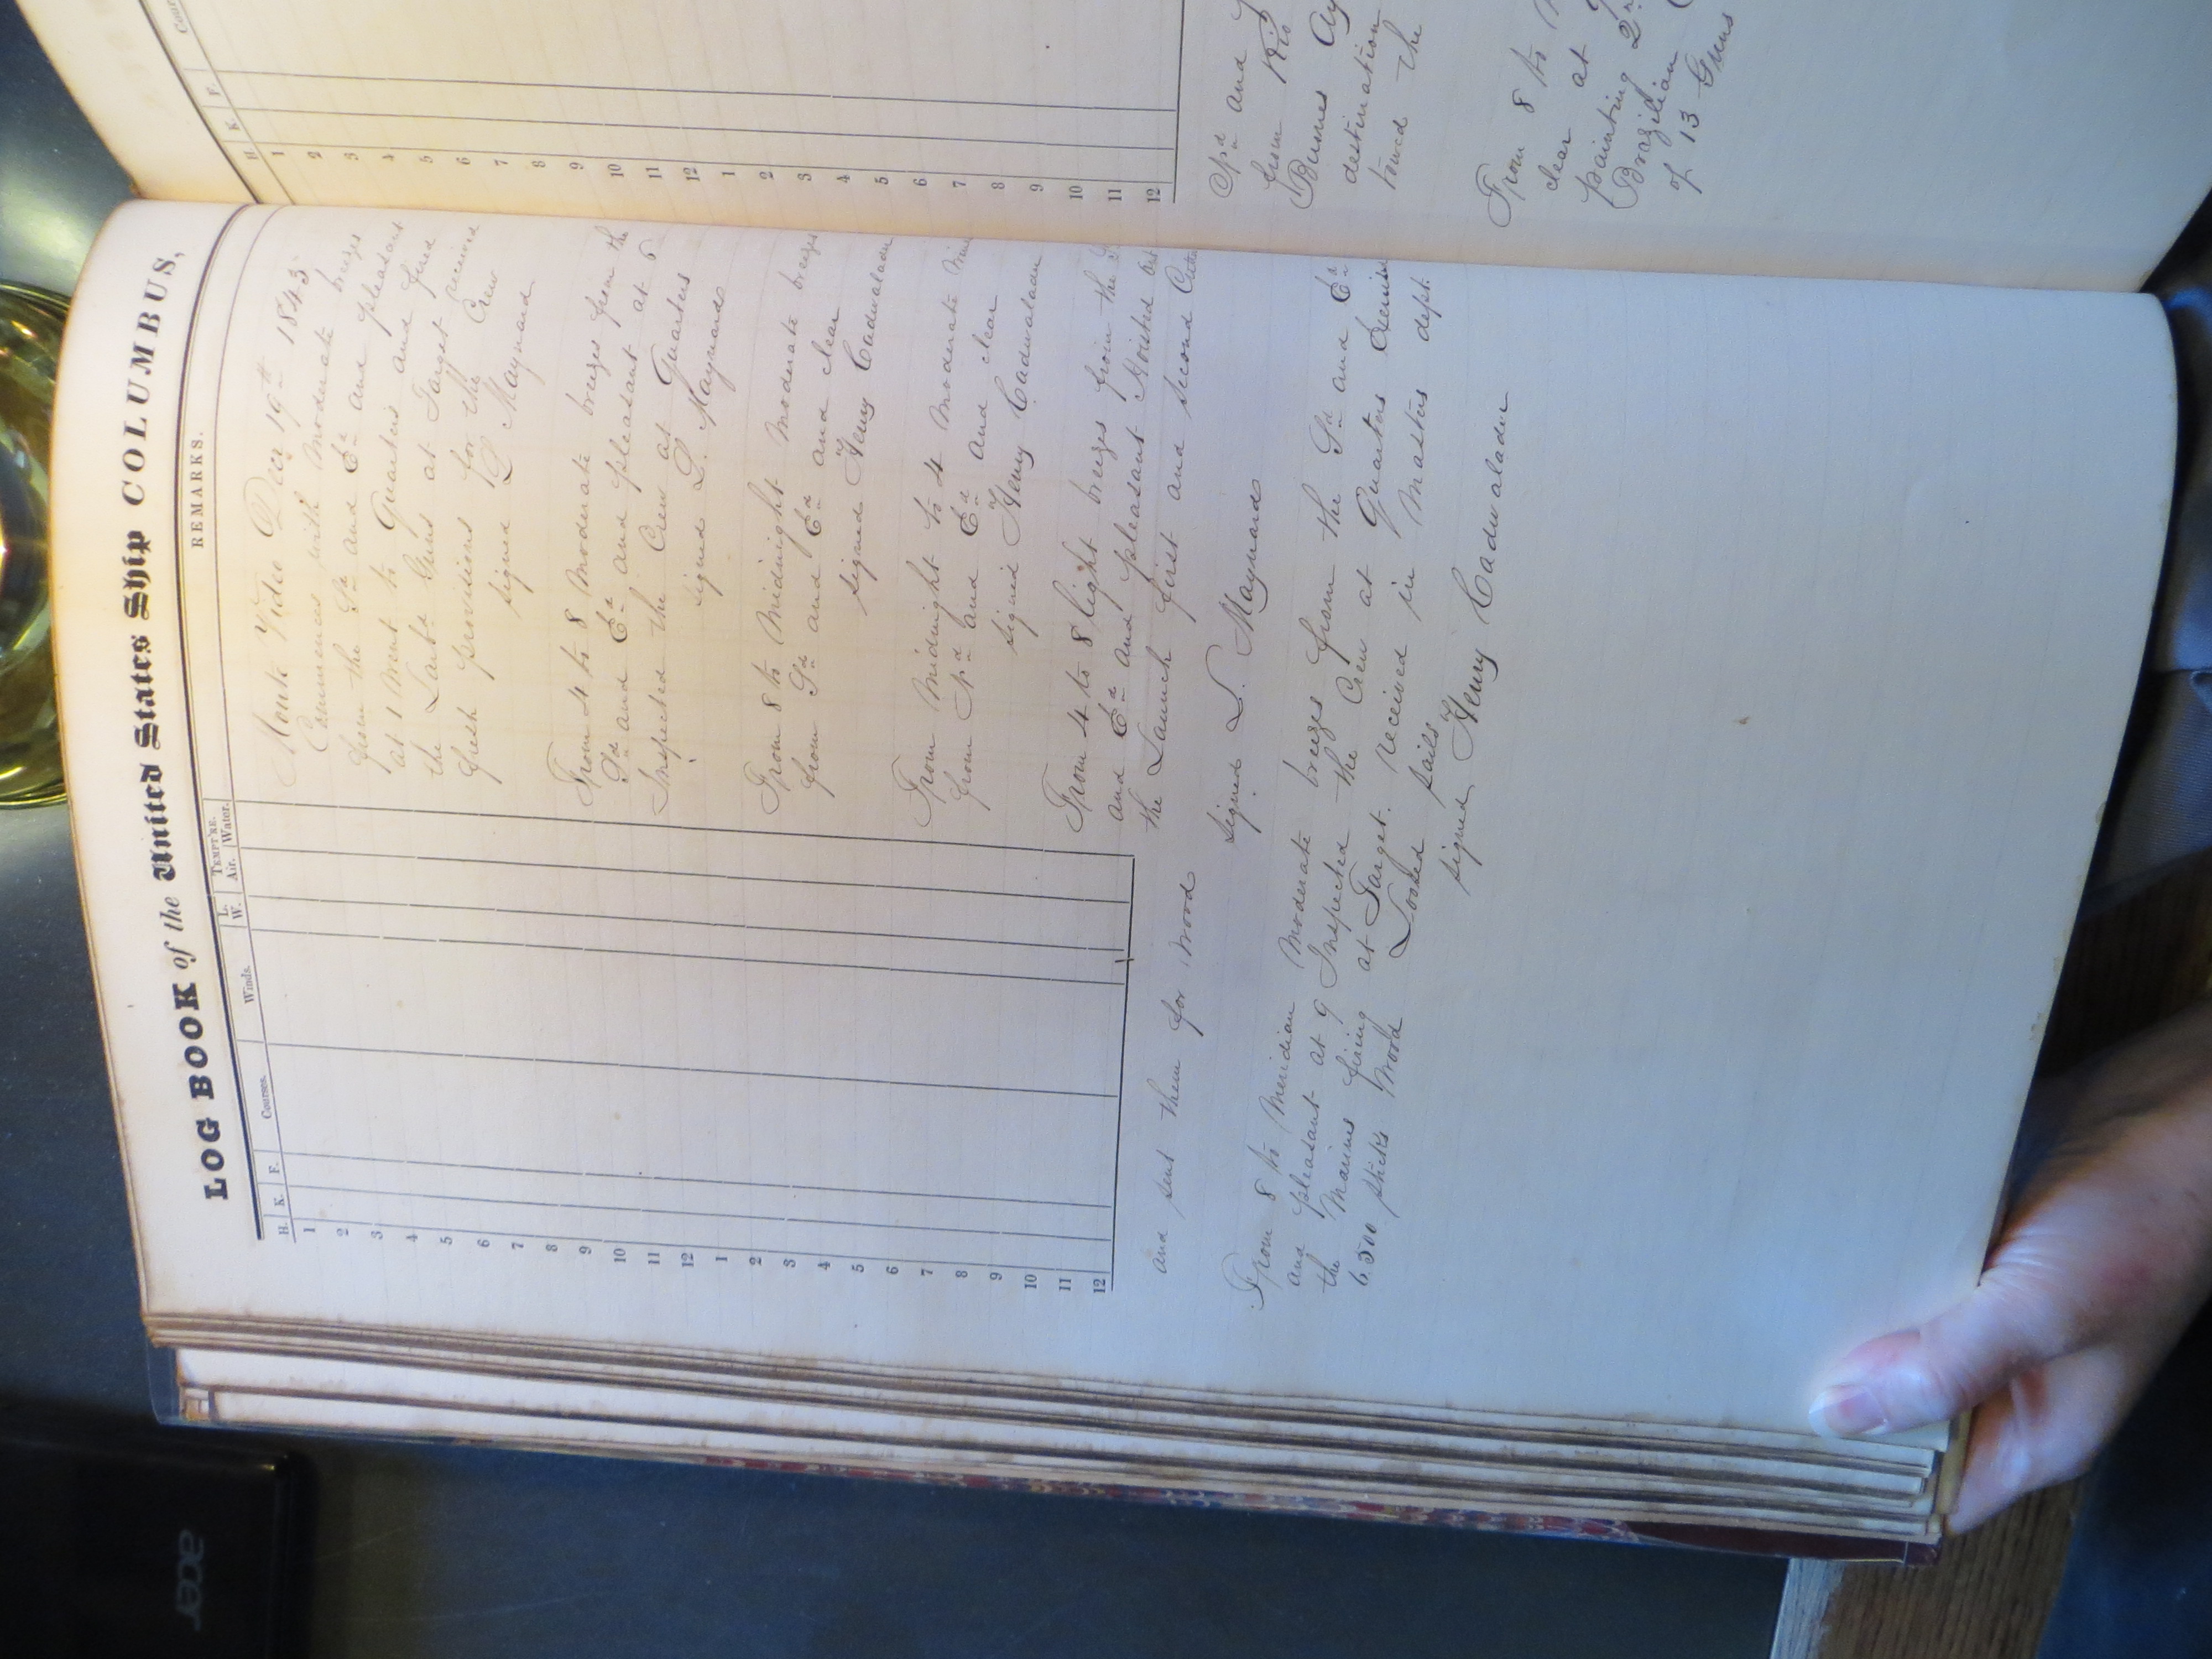 LOG BOOK of the United States Ship COLUMBUS,
H. K. F. Courses. Winds. L. W. TEMPT'RE. Air. Water. REMARKS.
1
2
3
4
5
6
7
8
9
10
11
12
1
2
3
4
5
6
7
8
9
10
11
12
Monte Video Decr 19th 1843
Commences with moderate breezes
from the Sd and Ed and pleasant
at 1 went to Quarters and fired
the Larbd Guns at Target received
fresh provisions for the Crew
signed L Maynard
From 4 to 8 Moderate breezes from the
Sd and Ed and pleasant at 6
Inspected the Crew at Quarters
signed L. Maynard
From 8 to Midnight Moderate breezes
from Sd and Ed and clear
signed Henry Cadwalader
From Midnight to 4 Moderate
from Nd and Ed and clear
signed Henry Cadwalader
From 4 to 8 light breezes from the
and Ed and pleasant Hoisted out
the Launch first and second
and sent them for wood
signed L. Maynard
From 8 to Meridian Moderate breezes from the Sd and Ed
and pleasant at 9 Inspected the Crew at Quarters
the Marines firing at Target. received in Masters dept.
6500 sticks wood Loosed sails
signed Henry Cadwalader
Cour
H. K. F.
1
2
3
4
5
6
7
8
9
10
11
12
1
2
3
4
5
6
7
8
9
10
11
12
and
from Rio
Buenos
destination
the
From 8 to
clear at
painting
Brazilian
of 13 Guns
acer